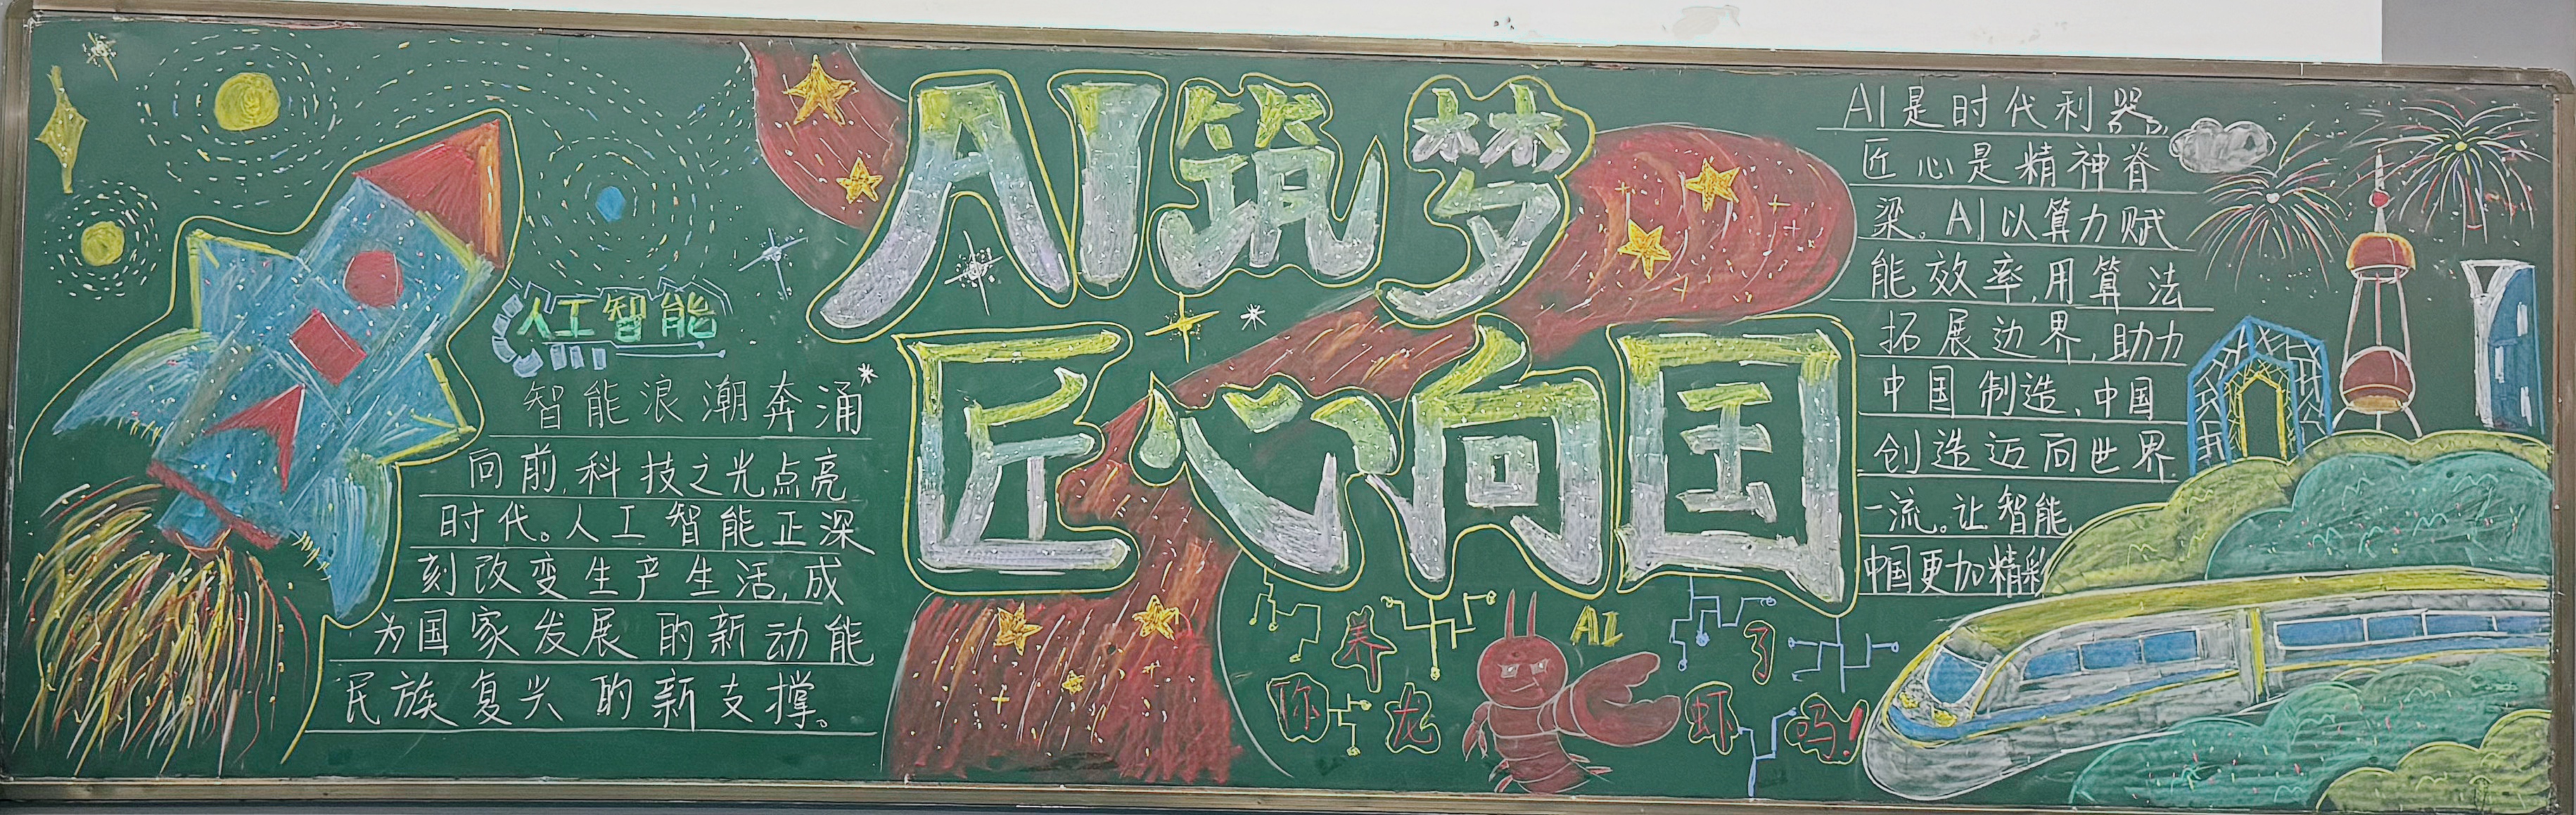 AI筑梦
匠心向国
人工智能
智能浪潮奔涌
向前,科技之光点亮
时代。人工智能正深
刻改变生产生活,成
为国家发展的新动能
民族复兴的新支撑。
AI是时代利器,
匠心是精神脊
梁。AI以算力赋
能效率,用算法
拓展边界,助力
中国制造、中国
创造迈向世界
一流。让智能
中国更加精彩
AI
你养龙虾了吗!